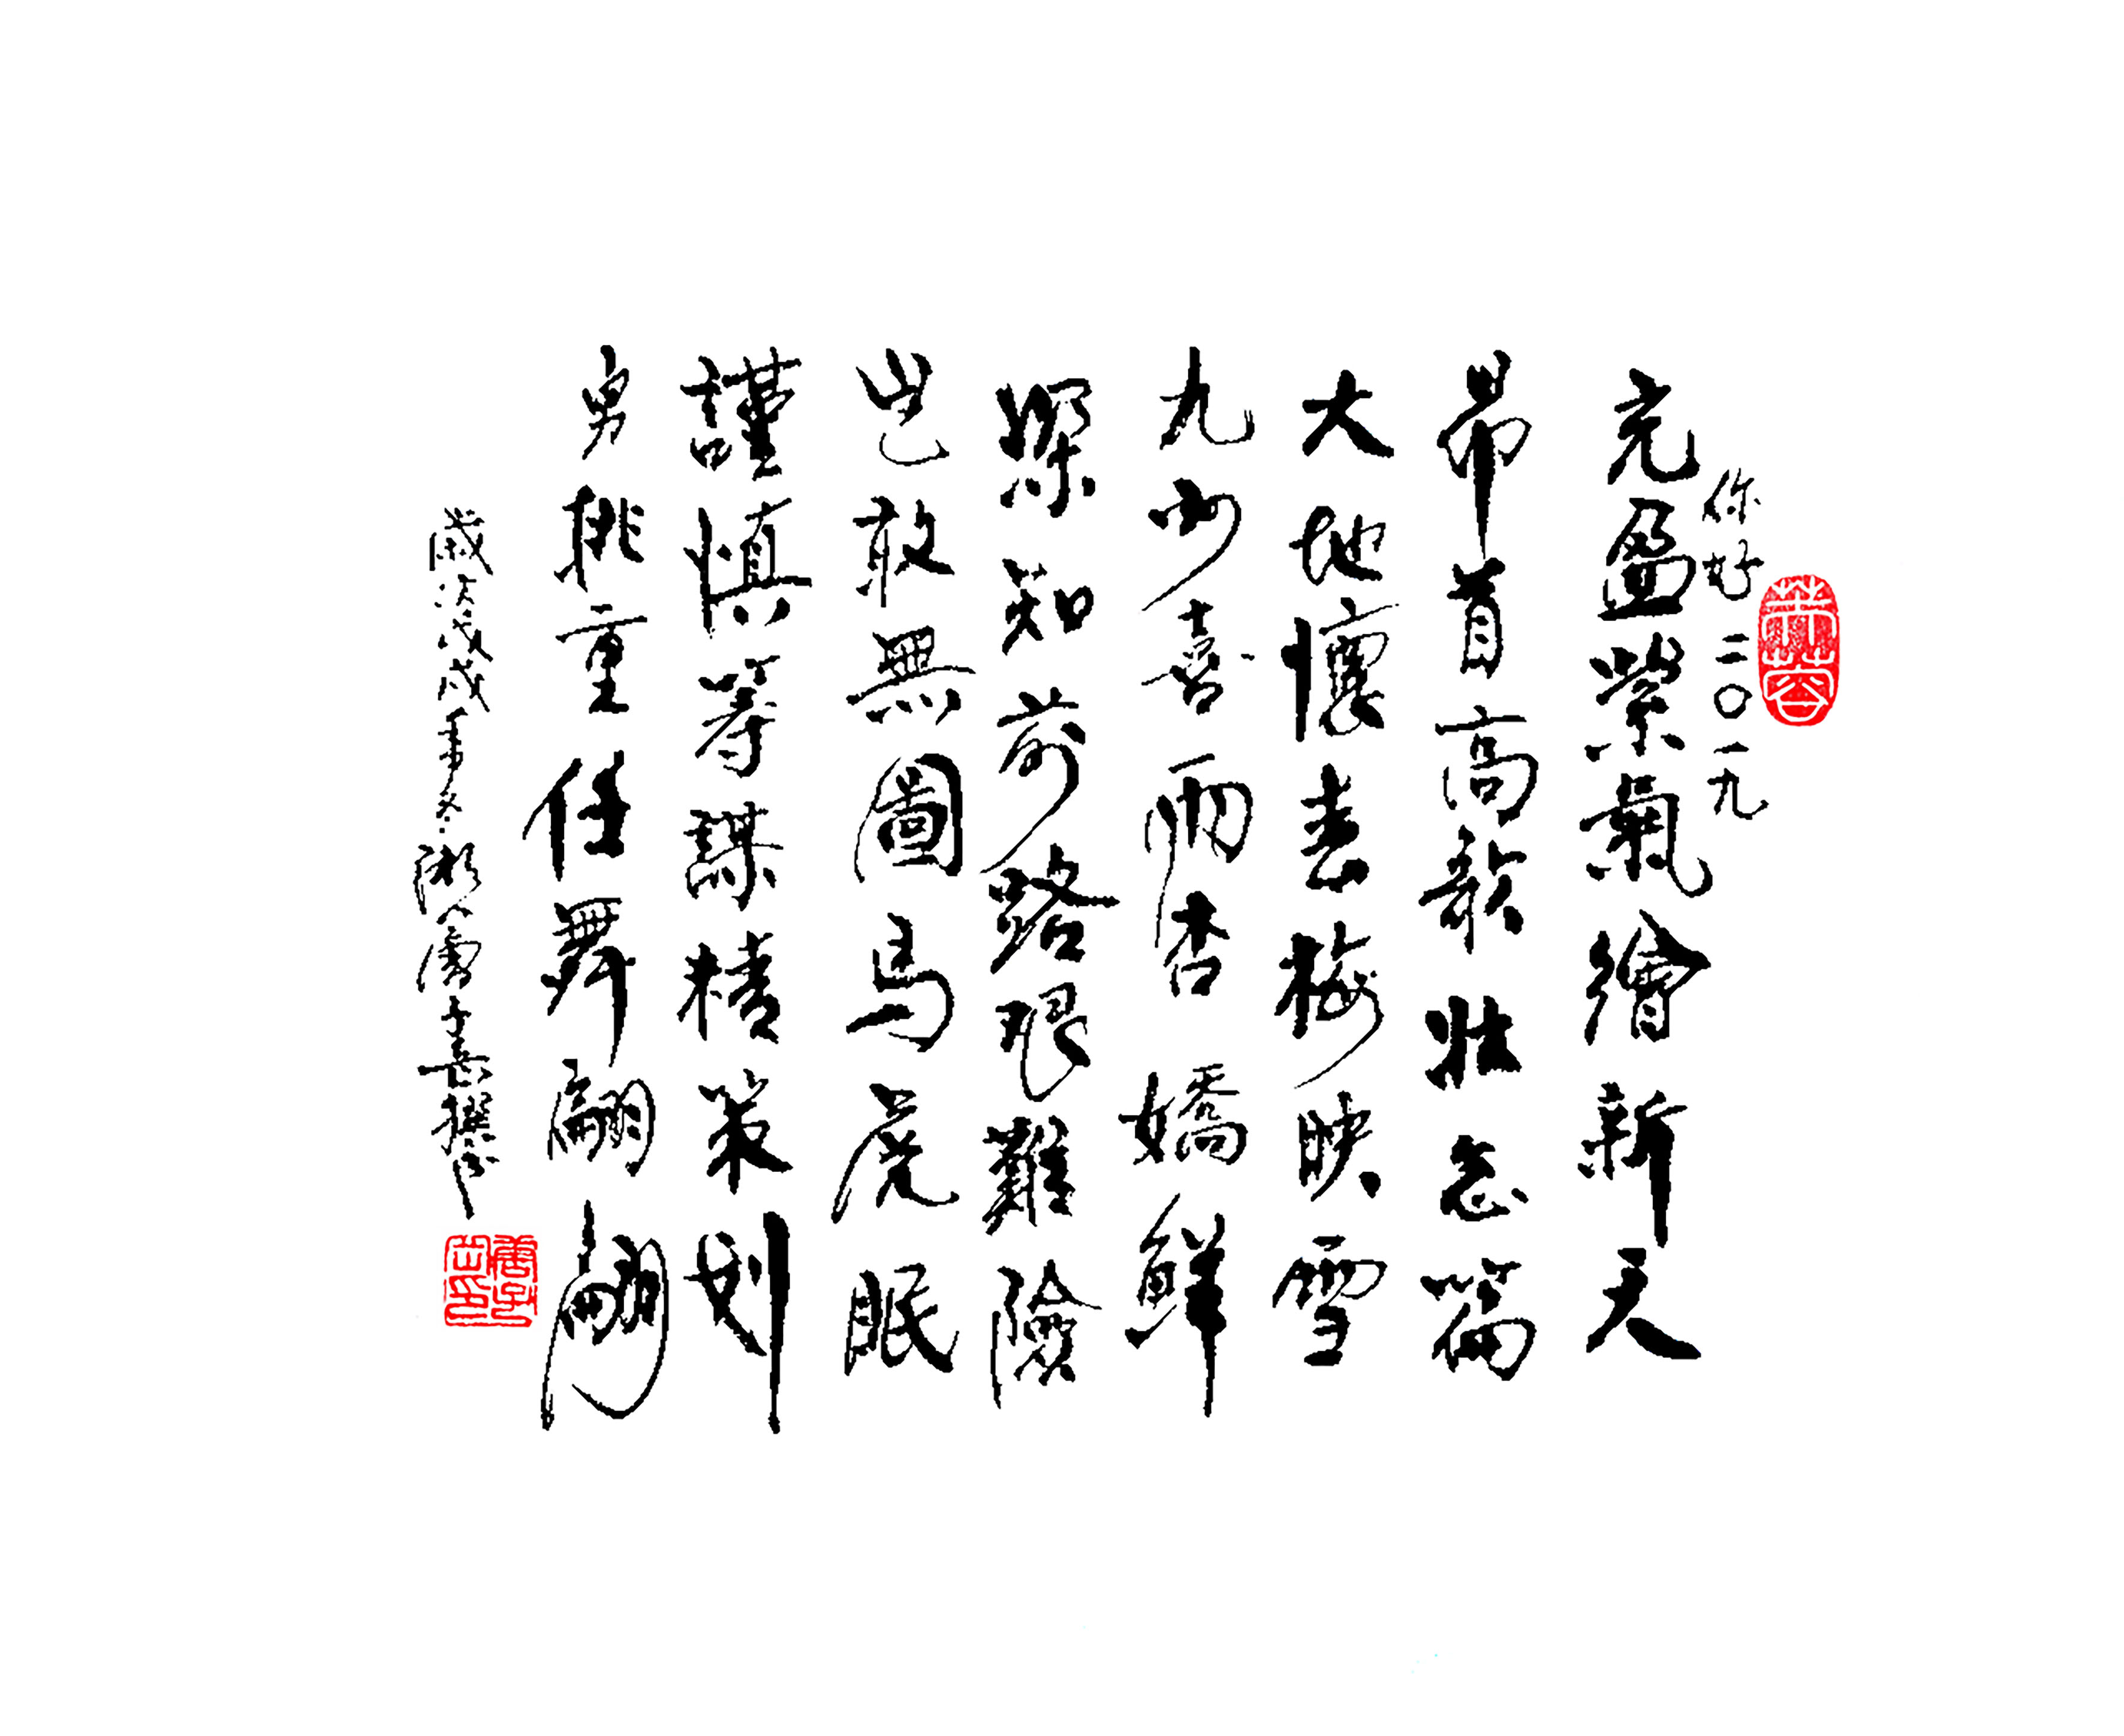 你好二〇一九
充盈紫氣繪新天
昂首高歌壯志篇
大地懷春梅映雪
九州喜雨杏嬌鮮
深知前路艱難險
豈敢無圖馬虎眠
謹慎籌謀精策划
勇挑重任舞翩翩
歲次戊戌年冬湘南子岳撰书